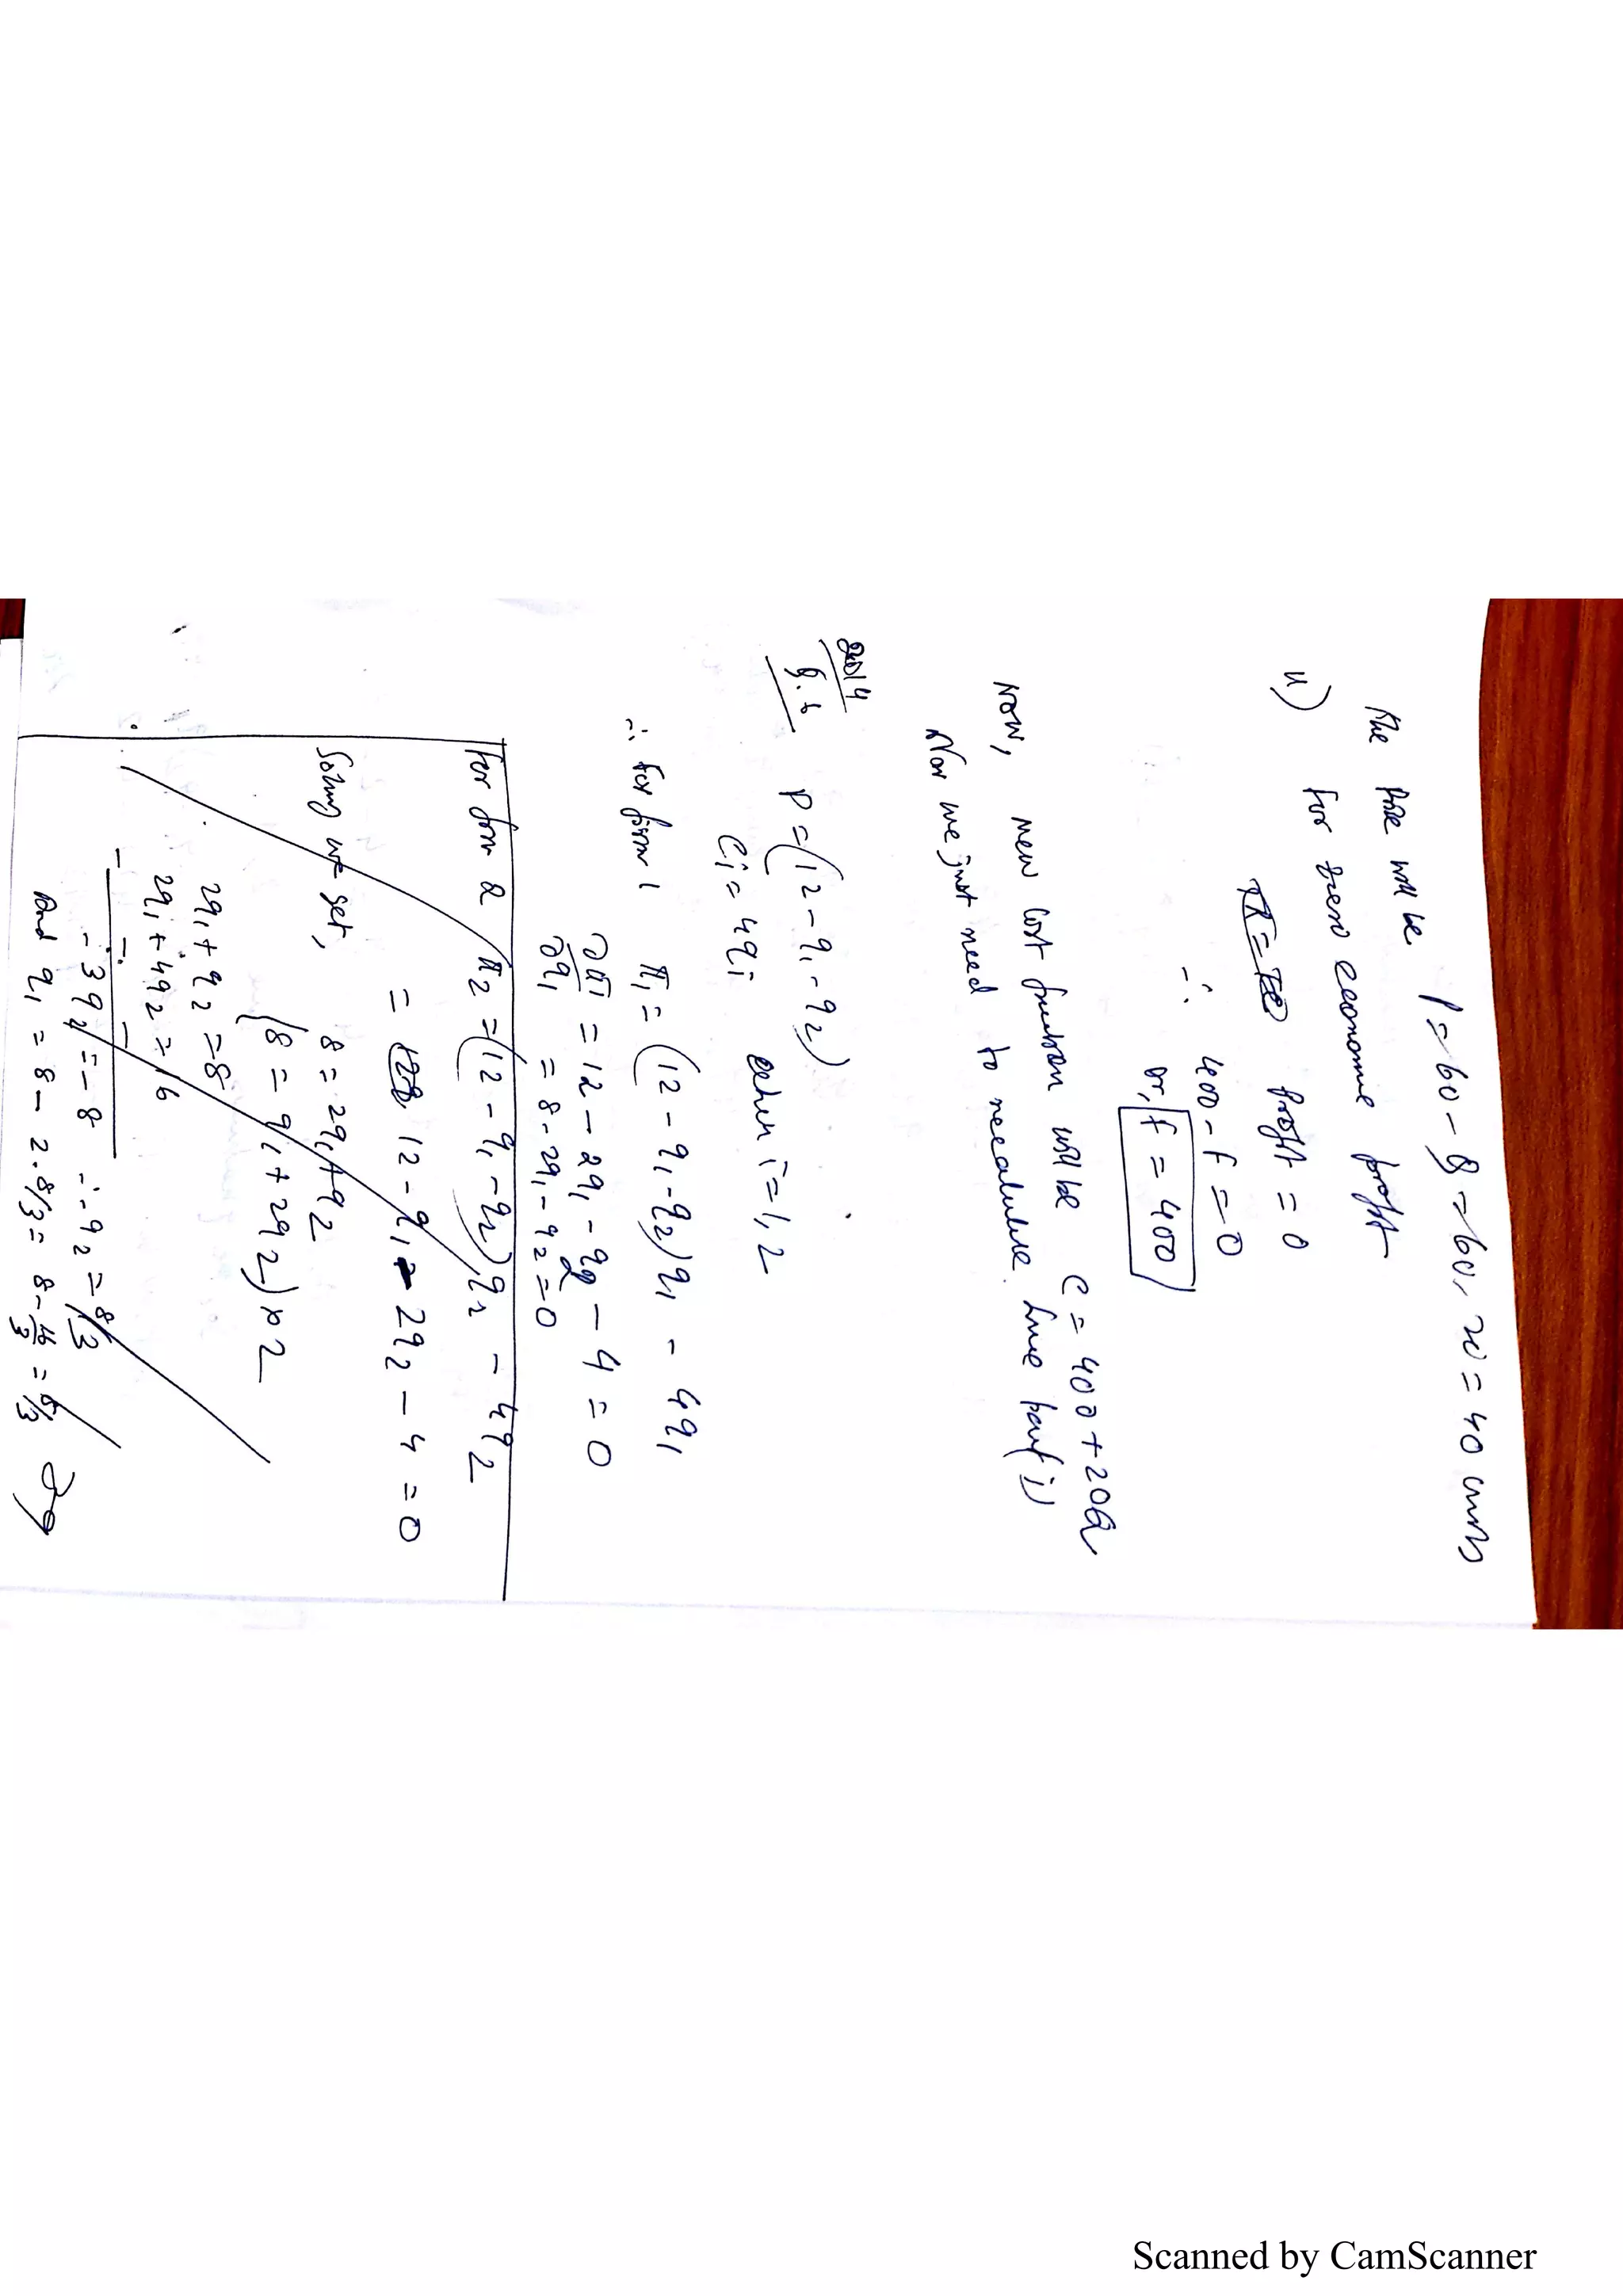 The Price will be
P = 60 - Q = 60 - 20 = 40 units
ii) For zero economic profit
TR = TC profit = 0
∴ 400 - F = 0
or, F = 400
Now, new cost function will be C = 400 + 20Q
Now we just need to recalculate like part i)
2014
Q.6 P = (12 - q1 - q2)
Ci = 4qi when i = 1, 2
∴ For firm 1 π1 = (12 - q1 - q2)q1 - 4q1
∂π1/∂q1 = 12 - 2q1 - q2 - 4 = 0
= 8 - 2q1 - q2 = 0
For firm 2 π2 = (12 - q1 - q2)q2 - 4q2
= 12 - q1 - 2q2 - 4 = 0
Solving we get, 8 = 2q1 + q2
(8 = q1 + 2q2) x 2
2q1 + q2 = 8
2q1 + 4q2 = 16
- - -
- 3q2 = - 8 ∴ q2 = 8/3
and q1 = 8 - 2.8/3 = 8 - 16/3 = 8/3
Scanned by CamScanner